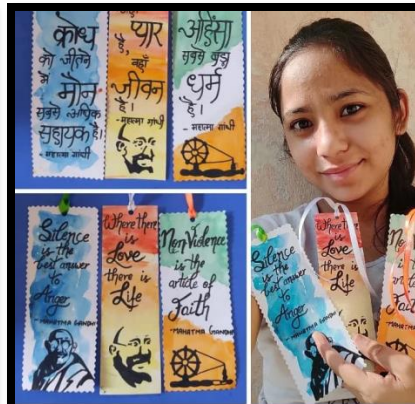 क्रोध
को जीतने
में
मौन
सबसे अधिक
सहायक है।
- महात्मा गांधी
प्यार
है, वहाँ
जीवन
है।
- महात्मा गांधी
अहिंसा
सबसे बड़ा
धर्म
है।
- महात्मा गांधी
Silence
is the
best answer
to
Anger
- MAHATMA GANDHI
Where there
is
Love
there is
Life
Non Violence
is the
article of
Faith
- MAHATMA GANDHI
Silence
is the
best answer
to
Anger
- MAHATMA
Where there
is
Love
there is
Life